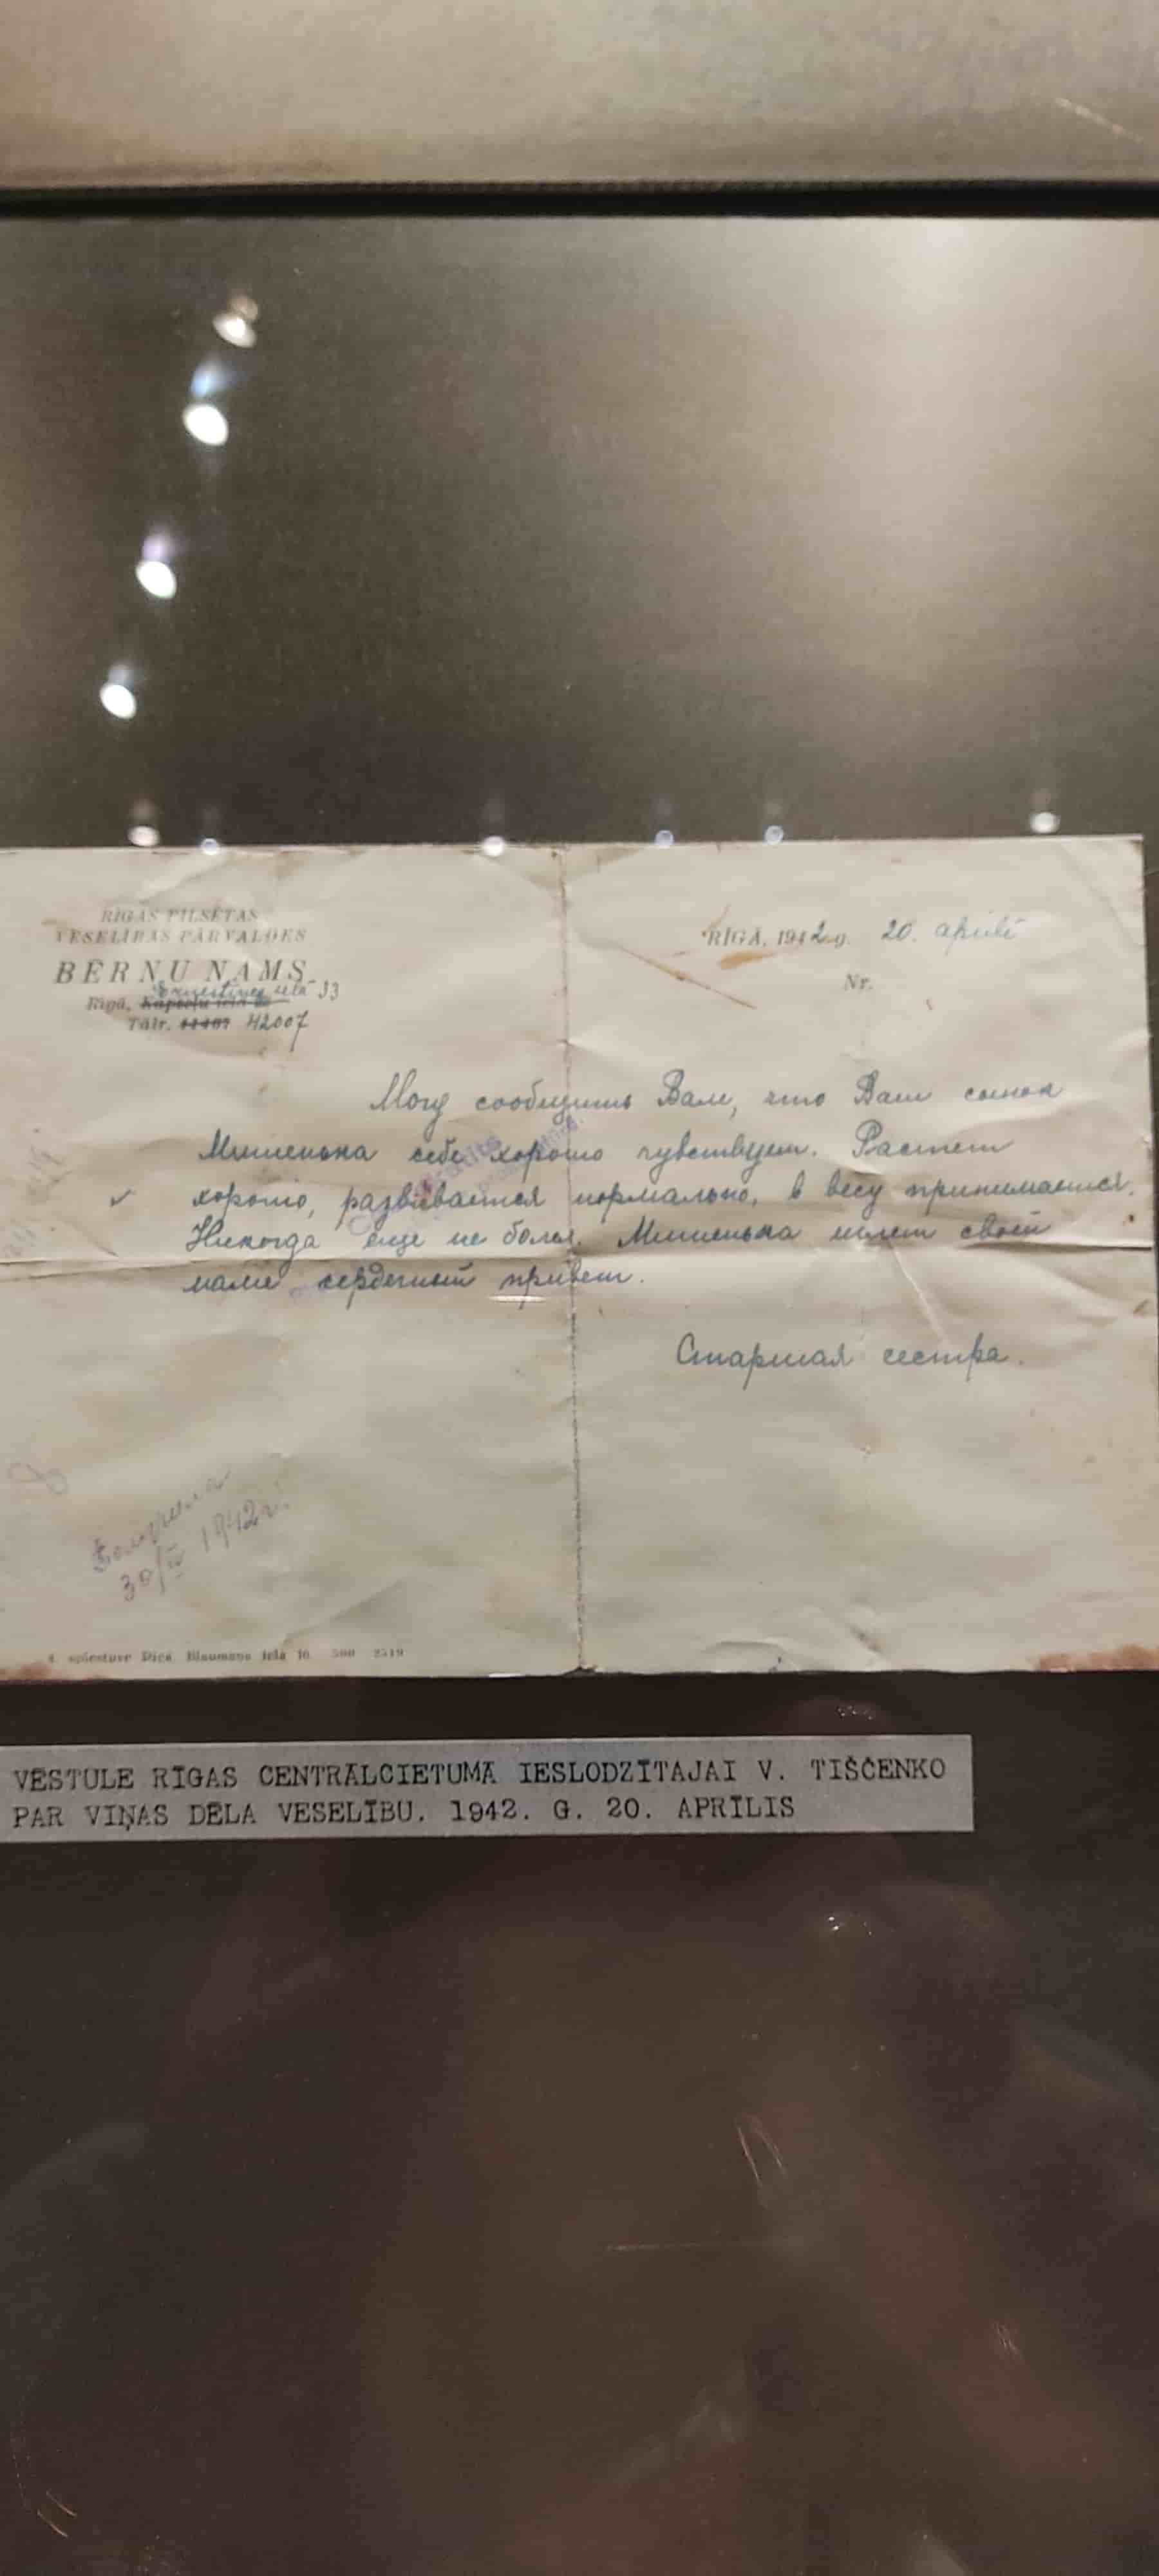 RĪGAS PILSĒTAS
VESELĪBAS PĀRVALDES
BĒRNU NAMS
Ernestīnes ielā 33
Rīgā,
Tālr. 42007
RĪGĀ, 1942 g. 20. aprīlī
Nr.
Могу сообщить Вам, что Ваш сынок
Мишенька себе хорошо чувствует. Растет
хорошо, развивается нормально, в весу принимается.
Никогда еще не болел. Мишенька шлет своей
маме сердечный привет.
Старшая сестра.
30/IV 1942 г.
Blaumaņa ielā 16
VĒSTULE RĪGAS CENTRĀLCIETUMĀ IESLODZĪTAJAI V. TIŠČENKO
PAR VIŅAS DĒLA VESELĪBU. 1942. G. 20. APRĪLIS